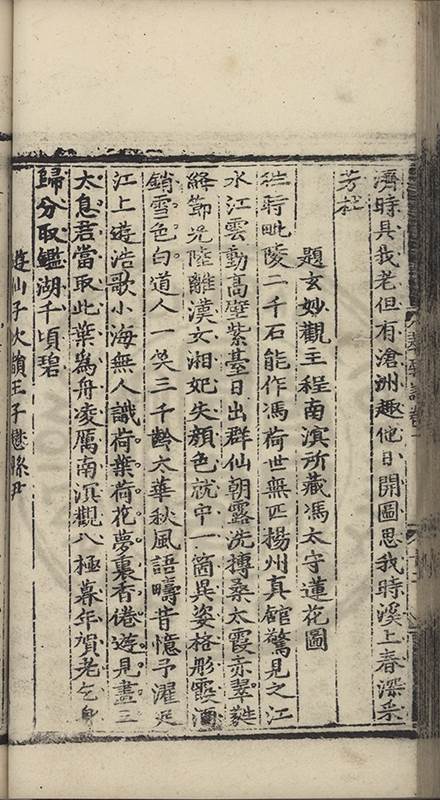 濟時具我老但有滄洲趣他日開圖思我時溪上春深采
芳杜
題玄妙觀主程南溟所藏馮太守蓮花圖
往時毗陵二千石能作馮荷世無匹楊州真館驚見之江
水江雲動高壁紫臺日出群仙朝露洗摶桑太霞赤翠蕤
絳節光陸離漢女湘妃失顏色就中一箇異姿格形霞酒
銷雪色白道人一笑三千齡太華秋風語疇昔憶予濯足
江上遊浩歌小海無人識荷葉荷花夢裏香倦遊見畫三
太息君當取此葉為舟凌厲南溟觀八極暮年賀老乞身
歸分取鑑湖千頃碧
遊仙子次韻王子懋縣尹